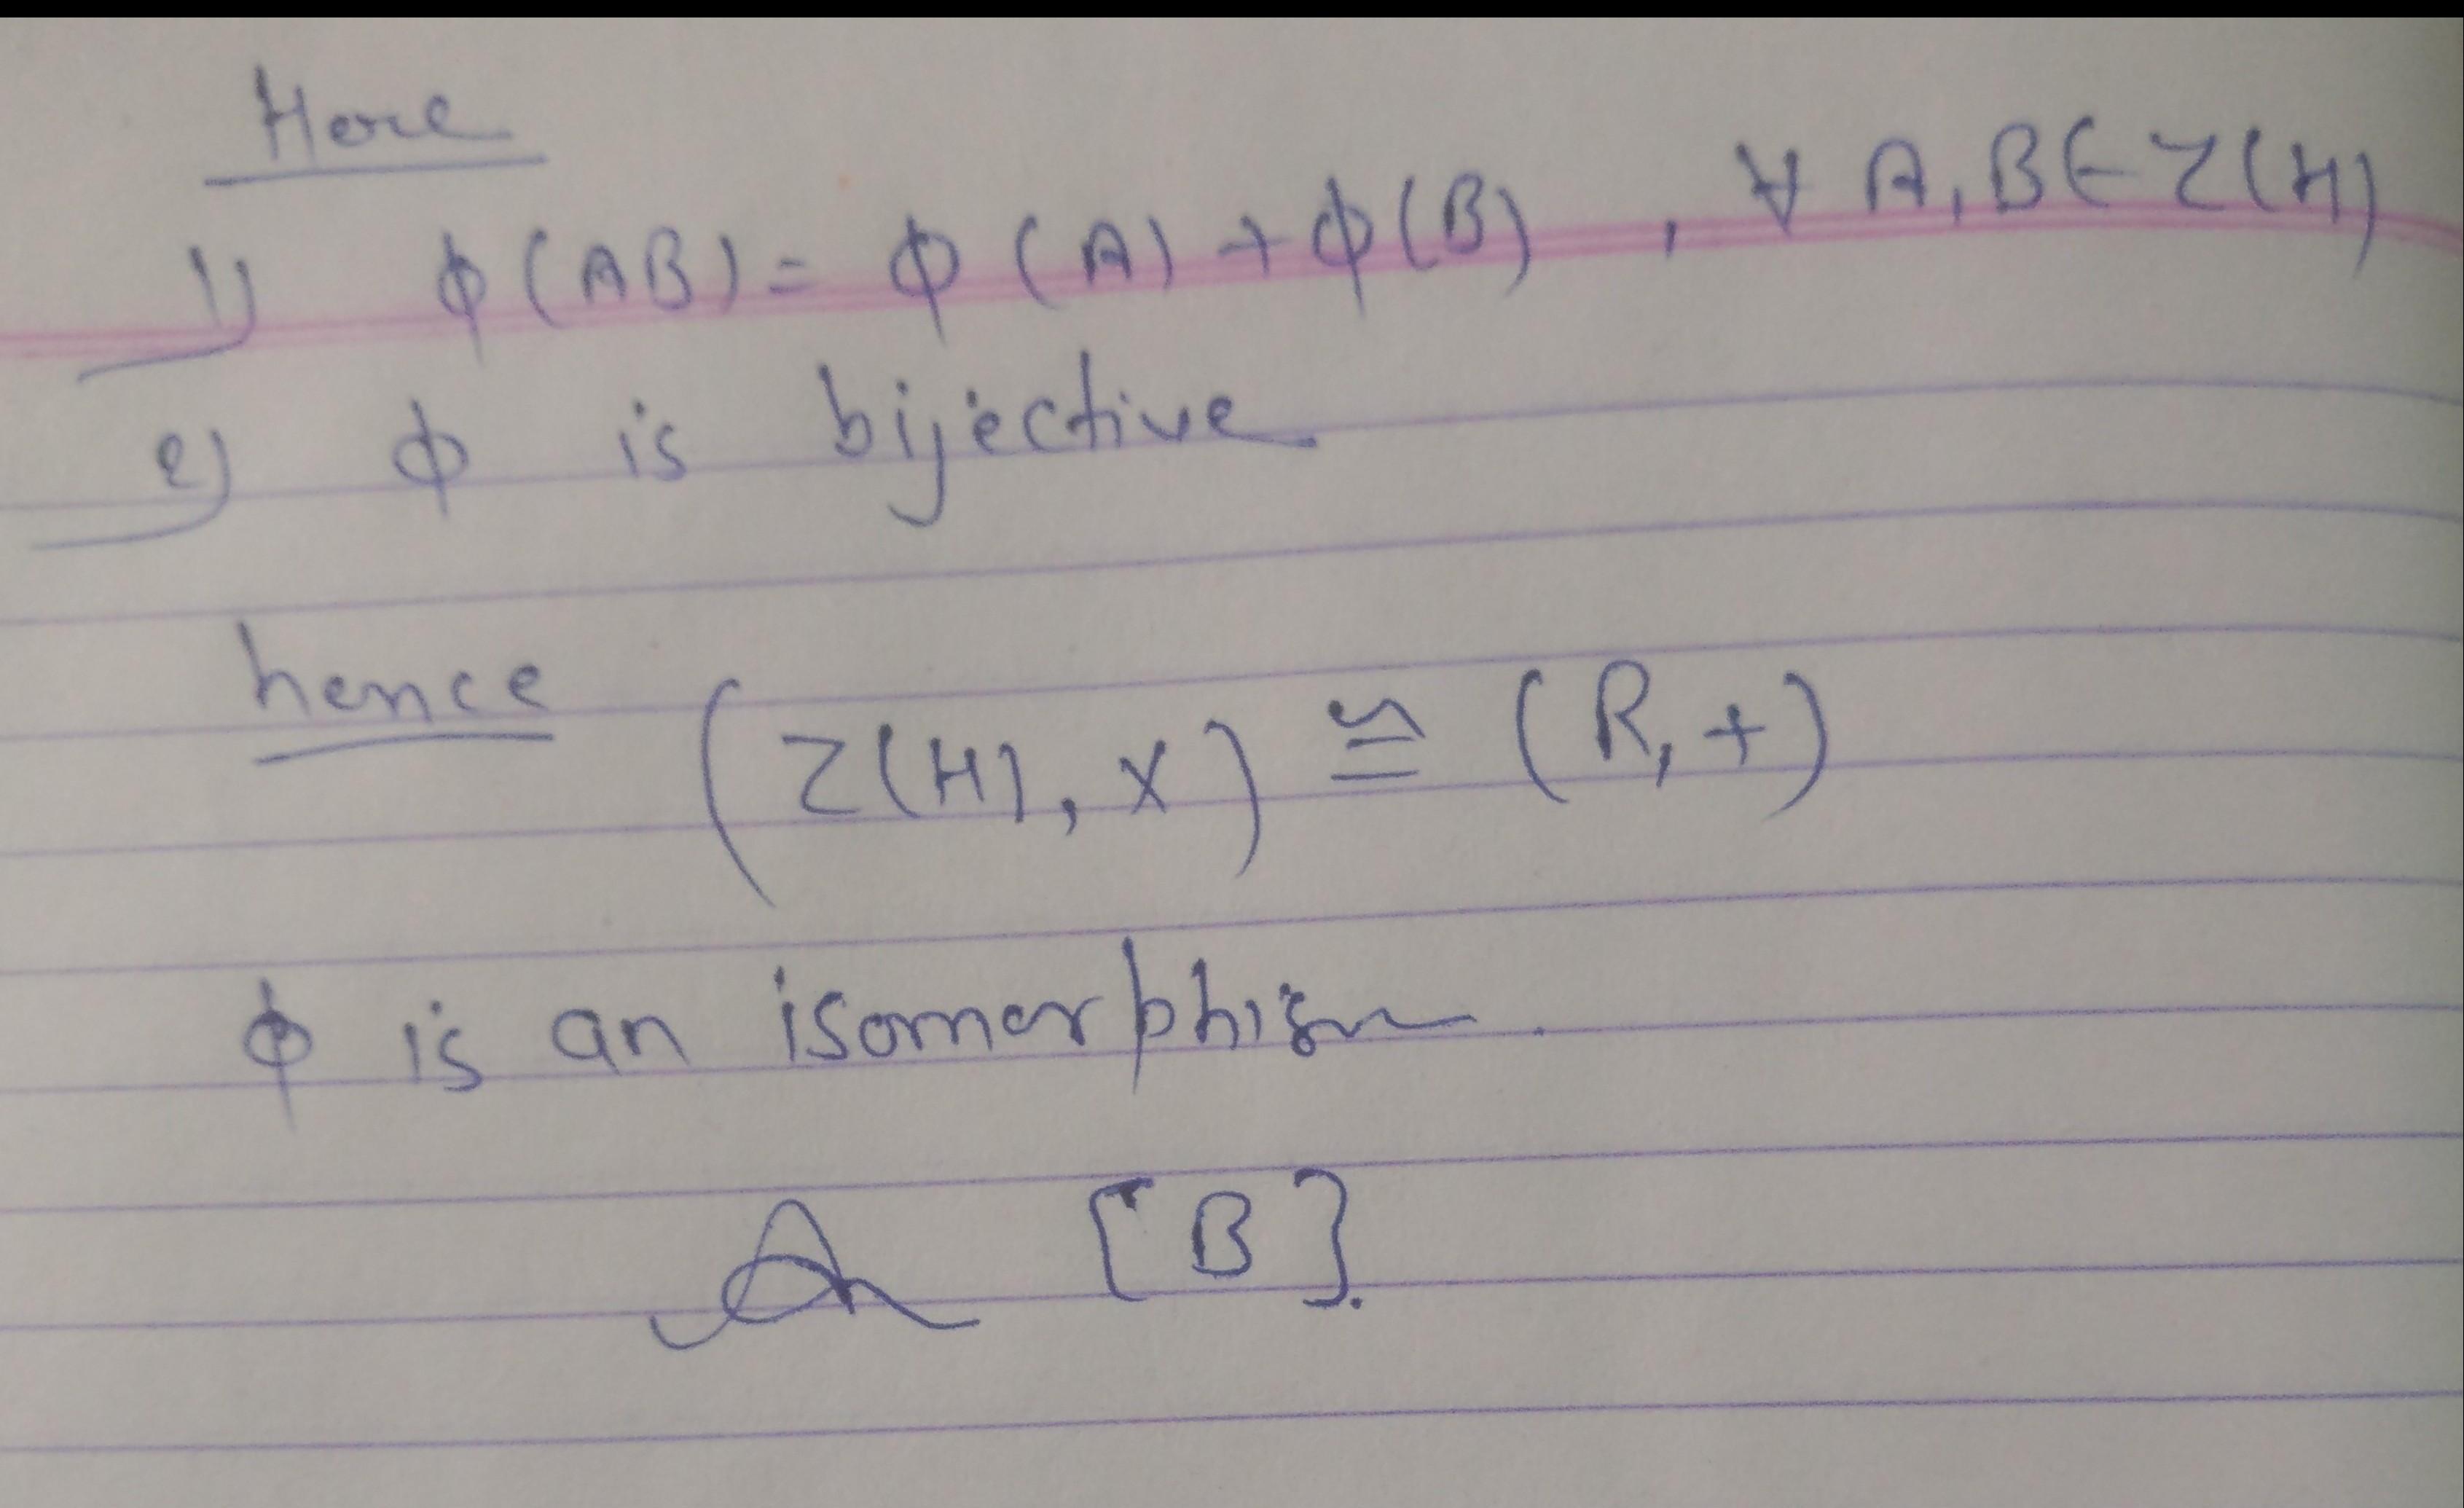 Here
1) ϕ(AB) = ϕ(A) + ϕ(B) , ∀ A, B ∈ Z(H)
2) ϕ is bijective
hence (Z(H), x) ≅ (R, +)
ϕ is an isomorphism.
[B].